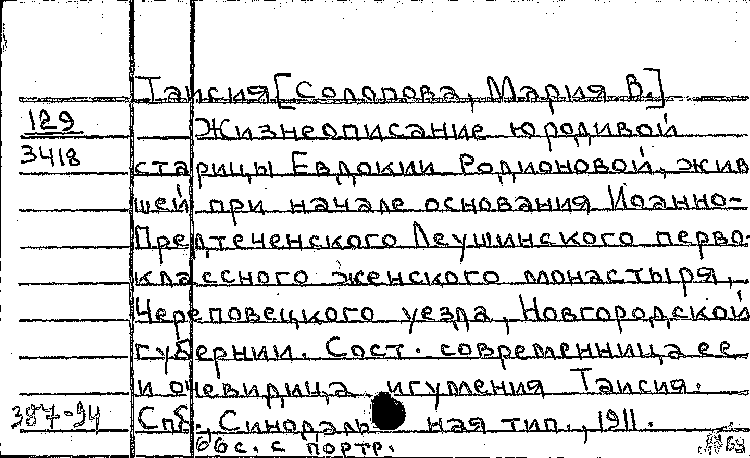 Таисия [Солопова, Мария В.]
129
3418
Жизнеописание юродивой
старицы Евдокии Родионовой, жив
шей при начале основания Иоанно-
Предтеченского Леушинского перво-
классного женского монастыря,
Череповецкого уезда, Новгородской
губернии. Сост. современница ее
и очевидица игумения Таисия.
387-94
Спб., Синодальная тип., 1911.
66 с. с портр.